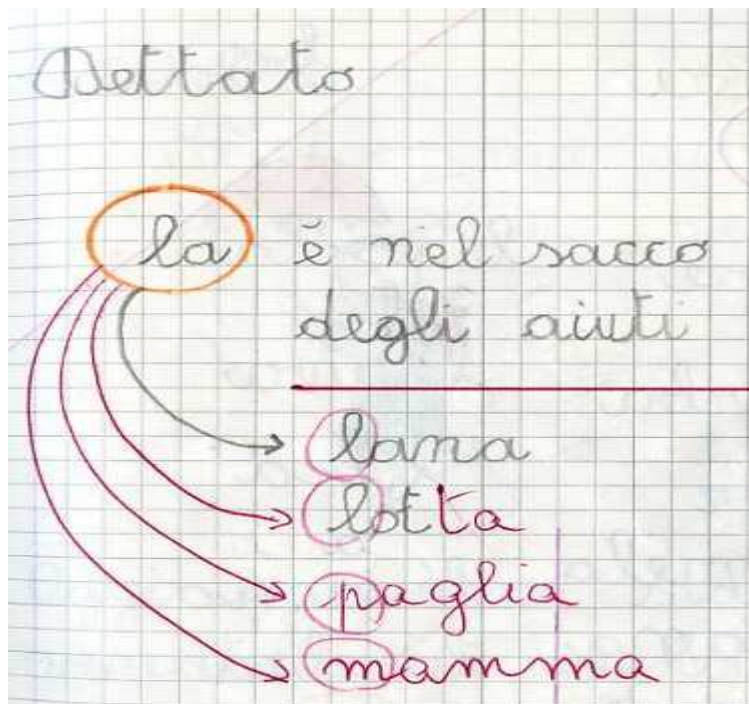 Dettato
la è nel sacco
degli aiuti
lana
lotta
paglia
mamma